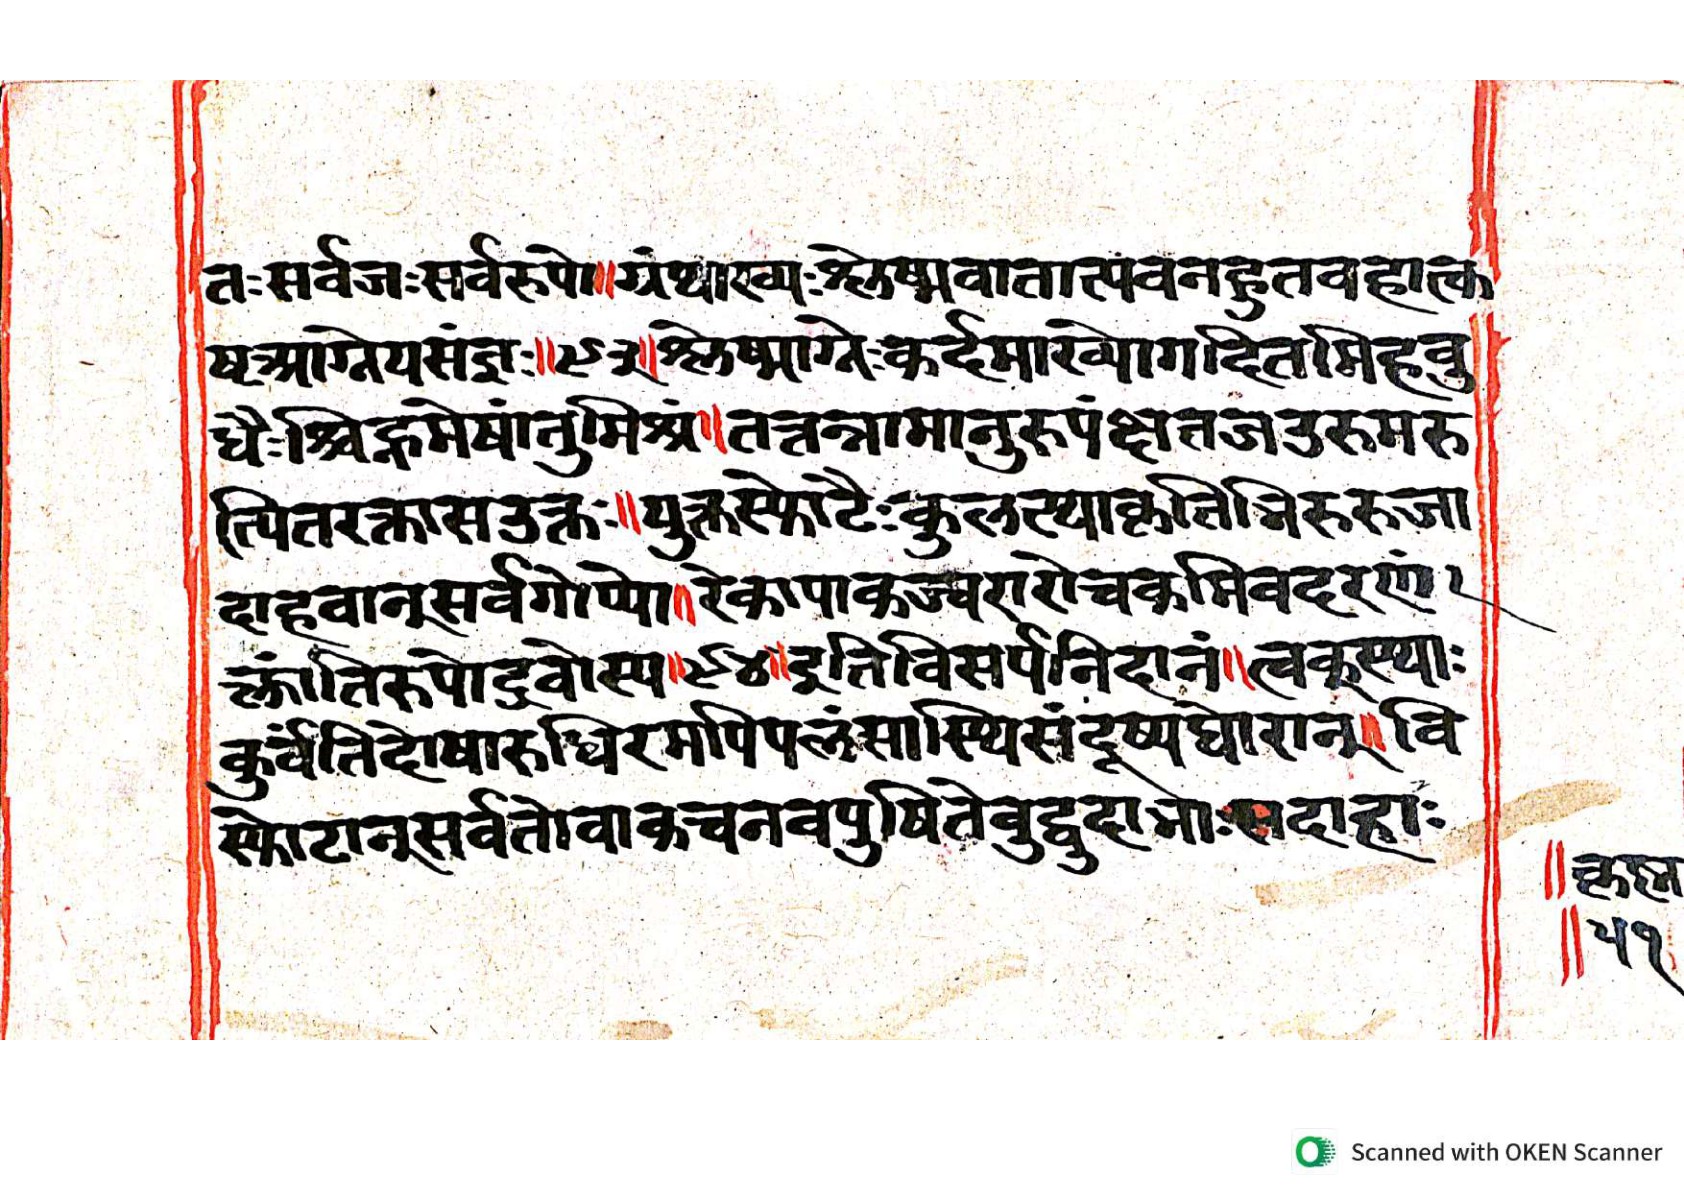 तःसर्वजःसर्वरुपो॥ग्रंथाख्यःश्लेष्मवातात्पवनहुतवहात्क
ष्टआग्नेयसंज्ञः॥९३॥श्लेष्माग्नेःकर्दमाख्योगदितमिहवु
धैःश्चिह्नमेषांतुमिश्रं॥तत्तन्नामानुरूपंक्षतजउरुमरु
त्पितरक्तासउक्तः॥युक्तस्फोटैःकुलत्थाकृतिभिरुरुजा
दाहवान्सर्वगोप्यो॥रेकापाकज्वरारोचकमिवदरणं
क्लांतिरुपोद्रवोस्य॥९४॥इतिविसर्पनिदानं॥त्वक्स्थाः
कुर्वंतिदोषारुधिरमपिपलंसास्थिसंदूष्यघोरान्॥वि
स्फोटान्सर्वतोवाकचनवपुषितेवुद्वुदाभाःसदाहाः
॥कृष्ण
॥५१
Scanned with OKEN Scanner